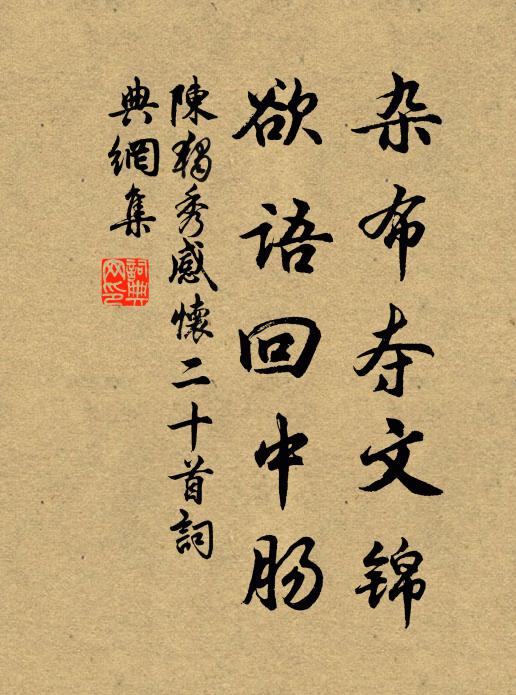 杂布夺文锦
欲语回中肠
陳獨秀感懷二十首詞
典網集
詞典
网印